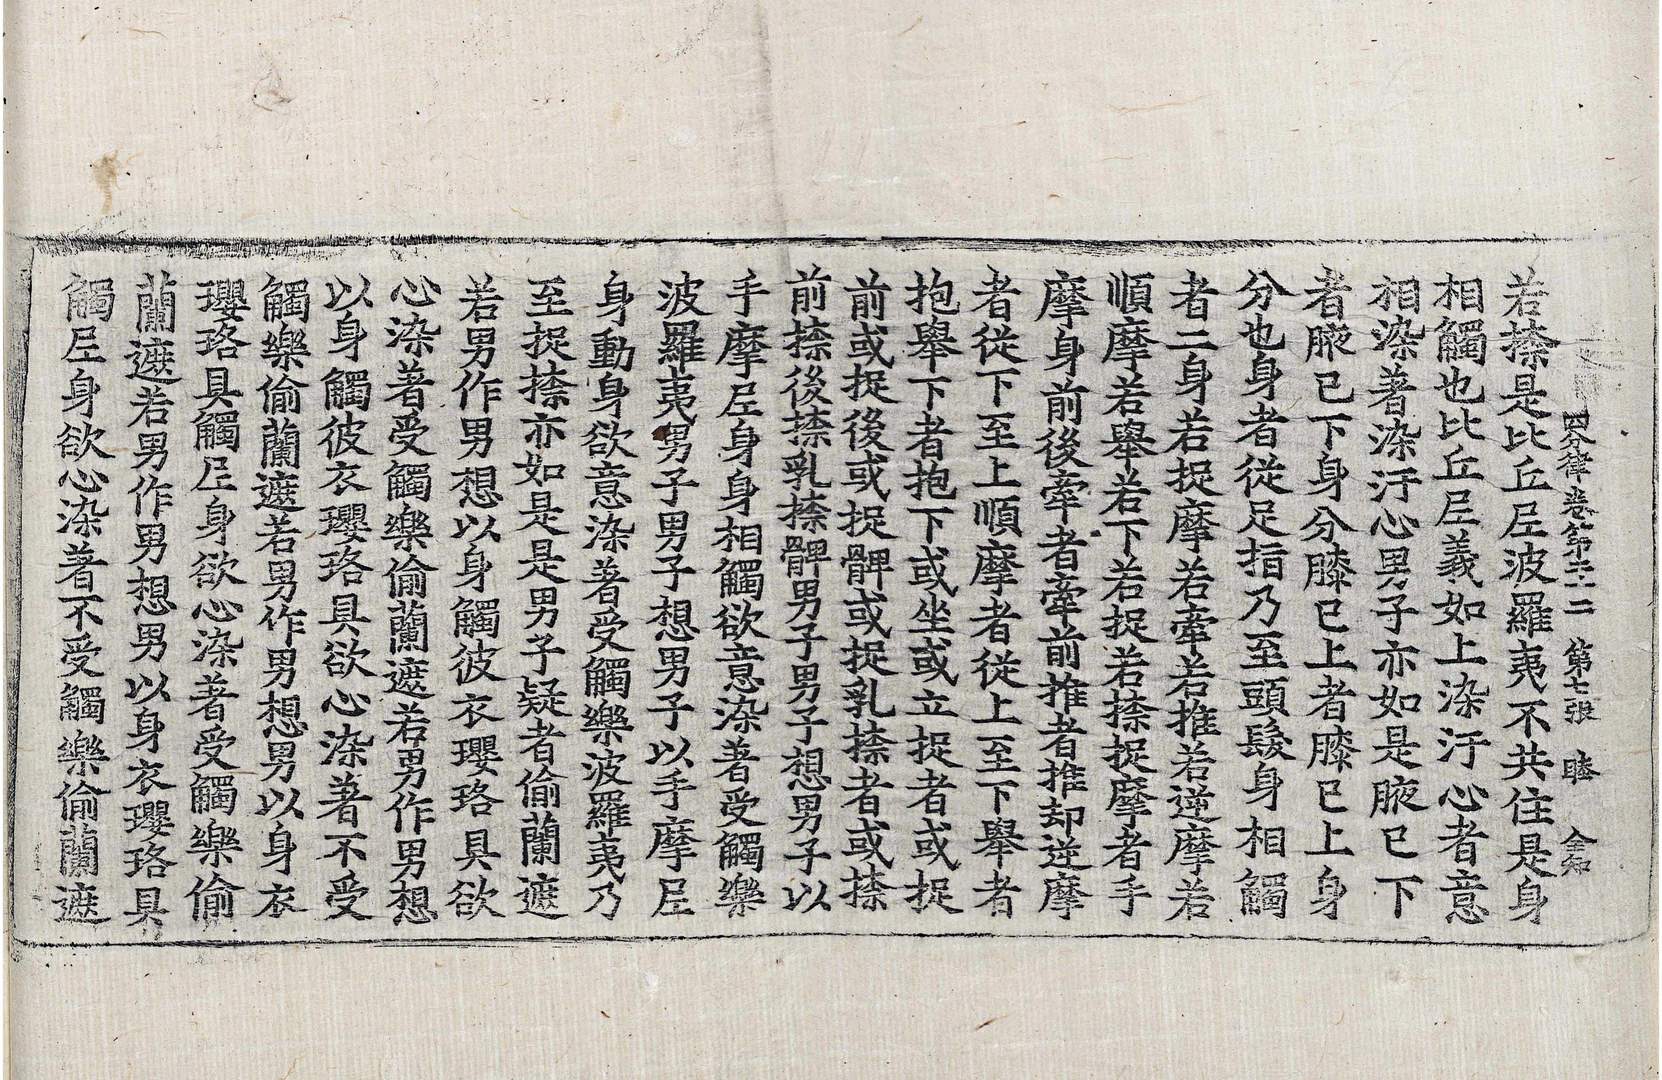 四分律卷第二十二　第七張　睦　全知
若捺是比丘尼波羅夷不共住是身
相觸也比丘尼義如上染汙心者意
相染著染汙心男子亦如是腋已下
者腋已下身分膝已上者膝已上身
分也身者從足指乃至頭髮身相觸
者二身若捉摩若牽若推若逆摩若
順摩若舉若下若捉若捺捉摩者手
摩身前後牽者牽前推者推却逆摩
者從下至上順摩者從上至下舉者
抱舉下者抱下或坐或立捉者或捉
前或捉後或捉髀或捉乳捺者或捺
前捺後捺乳捺髀男子男子想男子以
手摩尼身身相觸欲意染著受觸樂
波羅夷男子男子想男子以手摩尼
身動身欲意染著受觸樂波羅夷乃
至捉捺亦如是是男子疑者偷蘭遮
若男作男想以身觸彼衣瓔珞具欲
心染著受觸樂偷蘭遮若男作男想
以身觸彼衣瓔珞具欲心染著不受
觸樂偷蘭遮若男作男想男以身衣
瓔珞具觸尼身欲心染著受觸樂偷
蘭遮若男作男想男以身衣瓔珞具
觸尼身欲心染著不受觸樂偷蘭遮